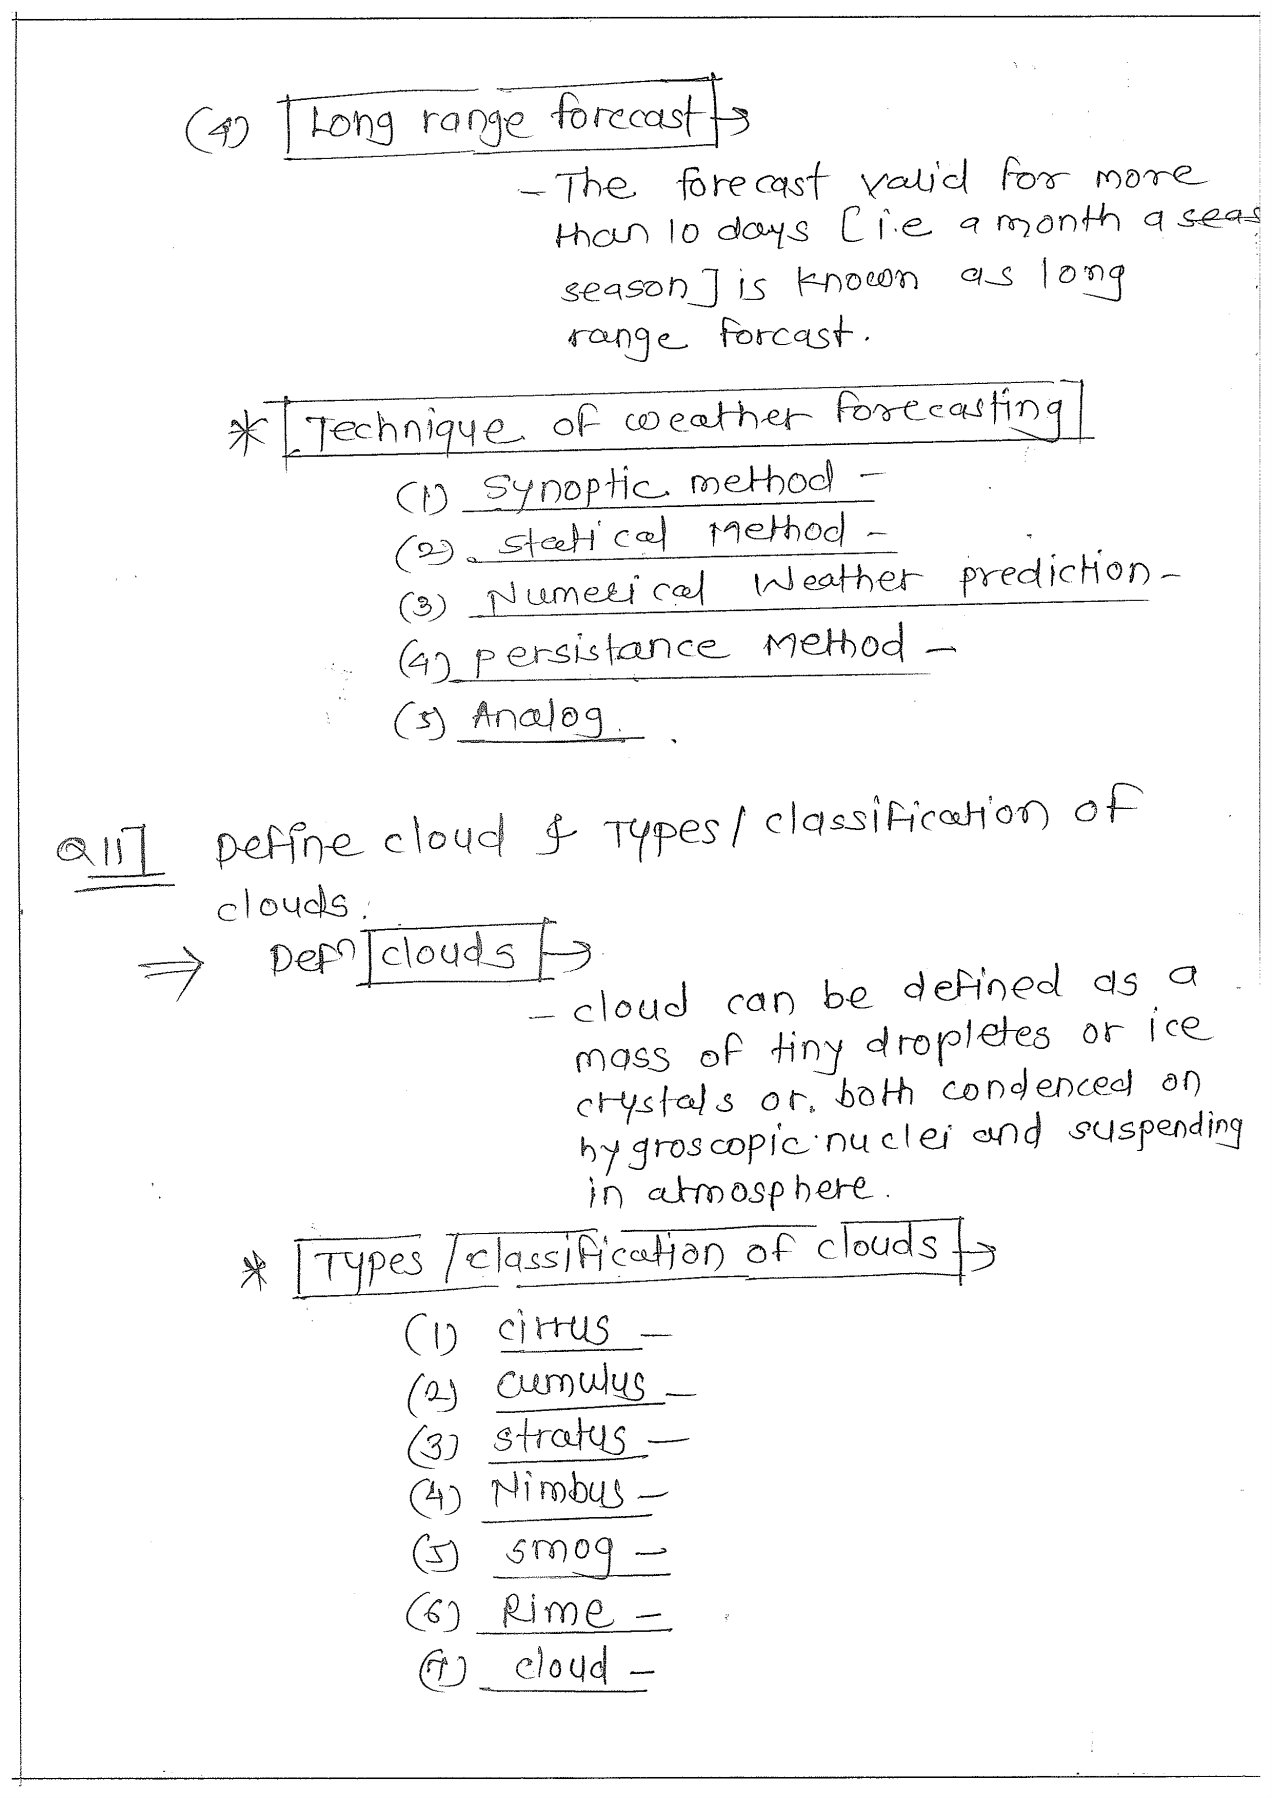 (4) Long range forecast →
- The forecast valid for more
than 10 days [i.e a month a seas
season] is known as long
range forcast.
* Technique of weather forecasting
(1) Synoptic method -
(2) Statical Method -
(3) Numerical Weather prediction -
(4) persistance Method -
(5) Analog.
Q 11] Define cloud & Types / classification of
clouds.
⇒ Defn clouds →
- cloud can be defined as a
mass of tiny dropletes or ice
crystals or, both condenced on
hygroscopic nuclei and suspending
in atmosphere.
* Types / classification of clouds →
(1) cirrus -
(2) cumulus -
(3) stratus -
(4) Nimbus -
(5) smog -
(6) Rime -
(7) cloud -